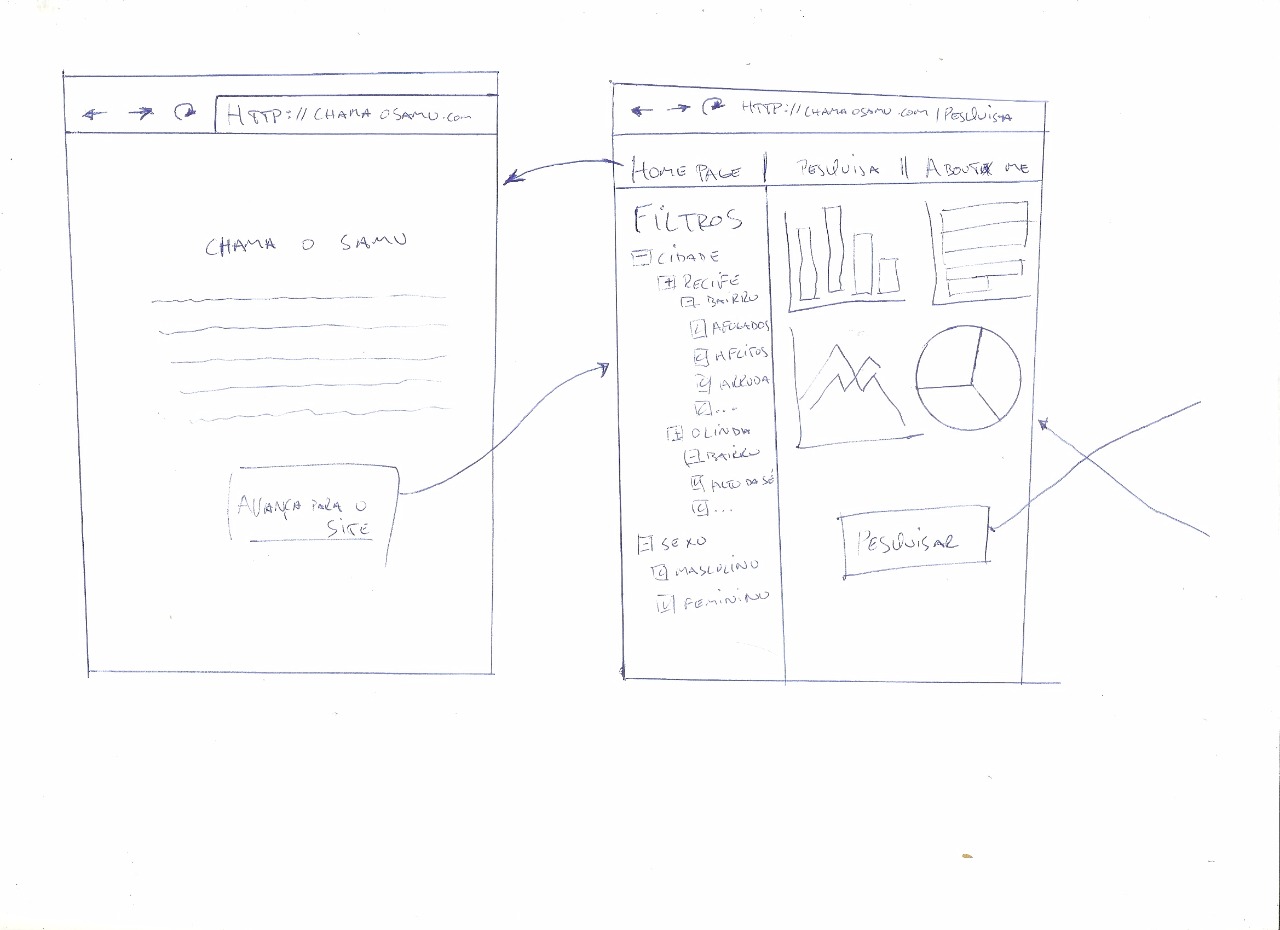 HTTP://CHAMAOSAMU.com
CHAMA O SAMU
AVANÇA PARA O
SITE
HTTP://CHAMAOSAMU.com/PESQUISA
HOME PAGE | PESQUISA || ABOUT ME
FILTROS
CIDADE
RECIFE
BAIRRO
AFOGADOS
AFLITOS
ARRUDA
...
OLINDA
BAIRRO
ALTO DA SÉ
...
SEXO
MASCULINO
FEMININO
PESQUISAR